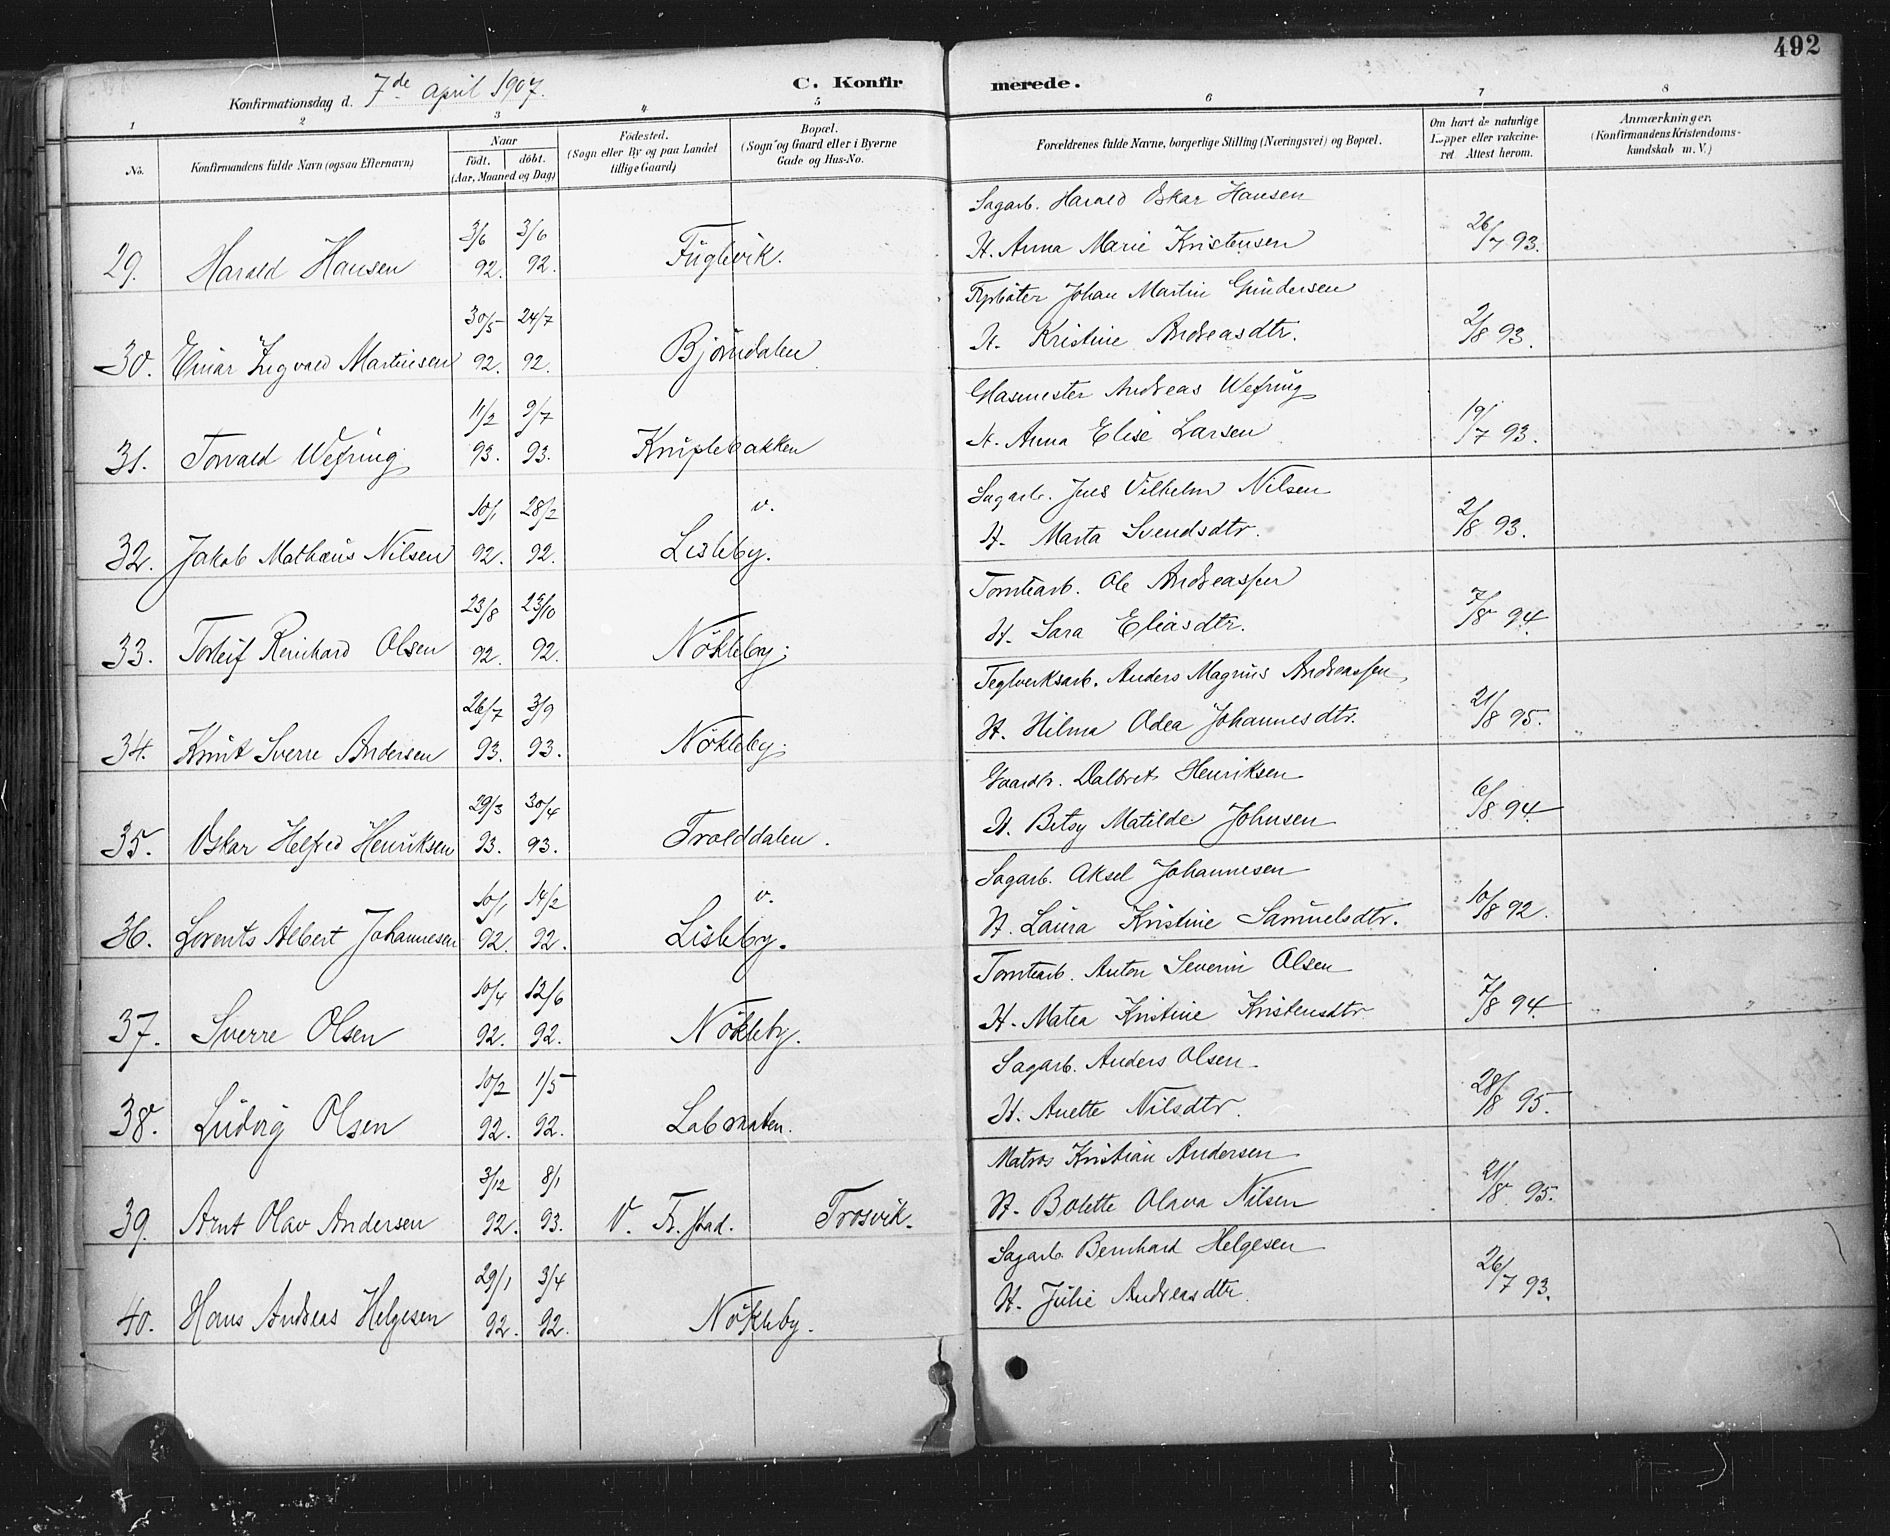 492
Konfirmationsdag d. 7de april 1907. C. Konfirmerede.
1 2 3 4 5 6 7 8
No. Konfirmandens fulde Navn (ogsaa Efternavn) Naar født. døbt. (Aar, Maaned og Dag) Fødested. (Sogn eller By og paa Landet tillige Gaard) Bopæl. (Sogn og Gaard eller i Byerne Gade og Hus-No. Forældrenes fulde Navne, borgerlige Stilling (Næringsvei) og Bopæl. Om havt de naturlige Kopper eller vakcineret. Attest herom. Anmærkninger. (Konfirmandens Kristendomskundskab m. V.)
Sagarb. Harald Oskar Hansen
29. Harald Hansen 3/6 92. 3/6 92. Fuglevik. H. Anna Marie Kristensen 26/7 93.
Johan Martin Gundersen
30. Einar Ingvald Martinsen 30/5 92. 24/7 92. Bjørndalen H. Kristine Andreasdtr. 2/8 93.
Glasmester Andreas Wefring
31. Torvald Wefring 11/2 93. 9/7 93. Kniplebakken H. Anna Elise Larsen 19/7 93.
Sagarb. Jens Vilhelm Nilsen
32. Jakob Mathæus Nilsen 10/1 92. 28/2 92. v. Lisleby. H. Marta Svendsdtr. 2/8 93.
Tomtearb. Ole Andreassen
33. Torleif Reinhard Olsen 23/8 92. 23/10 92. Nökleby. H. Sara Eliasdtr. 7/8 94.
Teglverksarb. Anders Magnus Andreassen
34. Knut Sverre Andersen 26/7 93. 3/9 93. Nökleby. H. Hilma Odea Johannesdtr. 21/8 95.
Gaardbr. Dalbret Henriksen
35. Oskar Helfred Henriksen 29/3 93. 30/4 93. Trolddalen. H. Betsy Matilde Johnsen 6/8 94
Sagarb. Aksel Johannesen
36. Lorents Albert Johannesen 10/1 92. 14/2 92. v. Lisleby. H. Laura Kristine Samuelsdtr. 10/8 92.
Tomtearb. Anton Severin Olsen
37. Sverre Olsen 10/4 92. 12/6 92. Nökleby. H. Matea Kristine Kristensdtr 7/8 94.
Sagarb. Anders Olsen
38. Ludvig Olsen 10/2 92. 1/5 92. Labraaten. H. Anette Nilsdtr. 28/8 95.
Matros Kristian Andersen
39. Arnt Olav Andersen 3/12 92. 8/1 93. V. Fr.stad. Trosvik. H. Bolette Olava Nilsen 21/8 95.
Sagarb. Bernhard Helgesen
40. Hans Andreas Helgesen 29/1 92. 3/4 92. Nökleby. H. Julie Andreasdtr. 26/7 93.